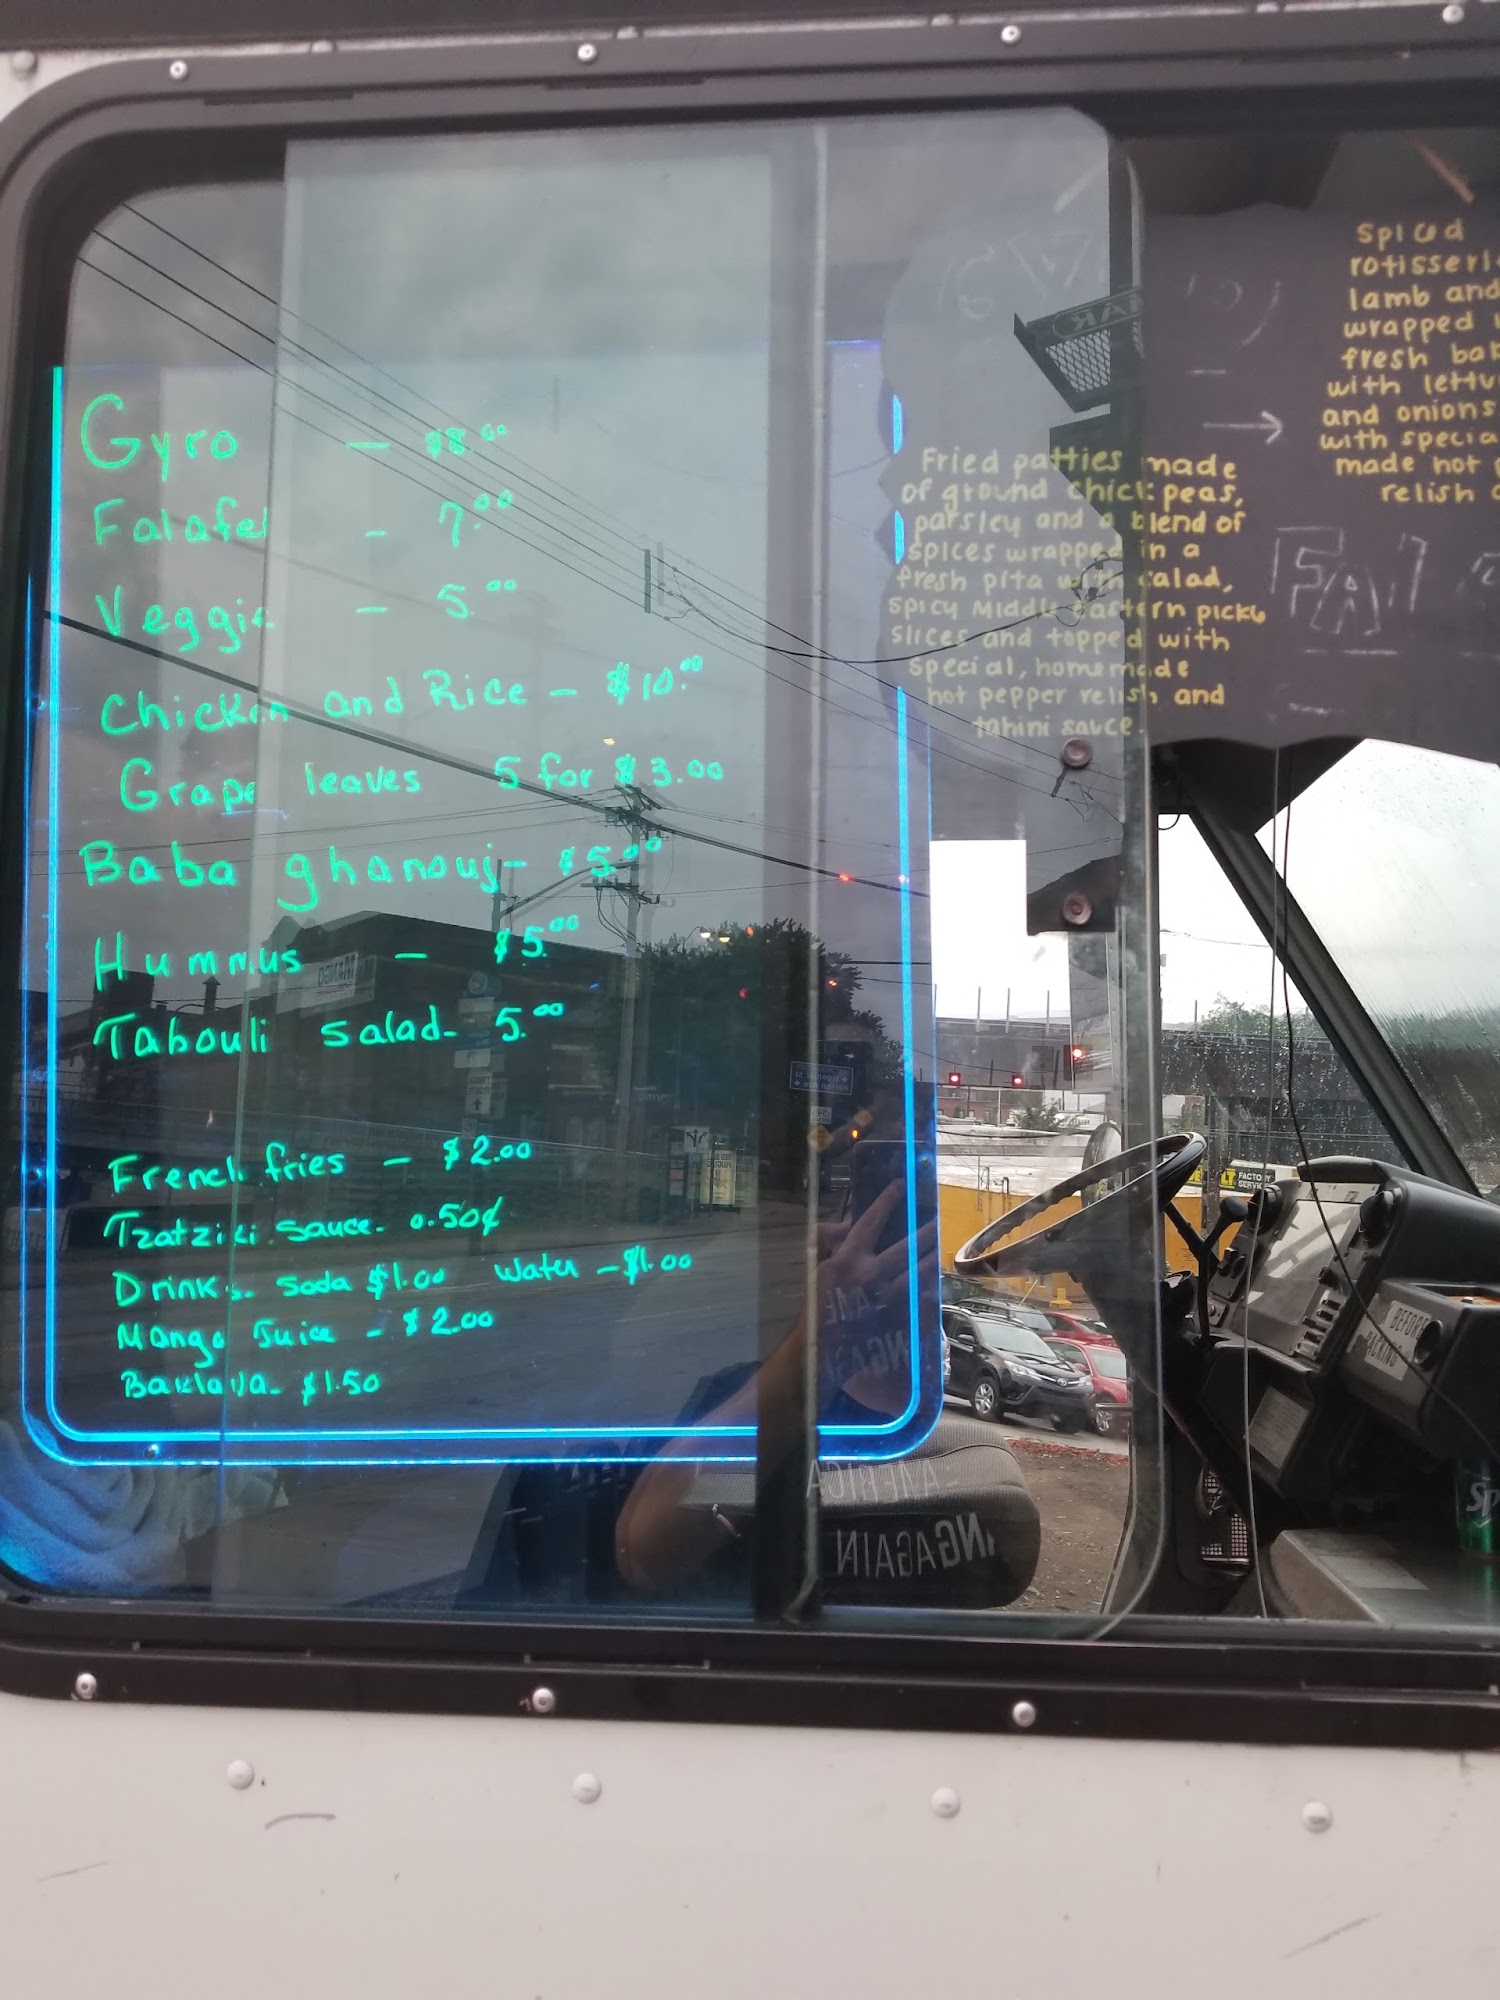 Gyro — $8.00
Falafel - 7.00
Veggie — 5.00
Chicken and Rice — $10.00
Grape leaves 5 for $3.00
Baba ghanouj- $5.00
Hummus — $5.00
Tabouli salad- 5.00
French fries — $2.00
Tzatziki sauce- 0.50¢
Drinks. Soda $1.00 Water — $1.00
Mango Juice - $2.00
Baklava- $1.50
Fried patties made
of ground chickpeas,
parsley and a blend of
spices wrapped in a
fresh pita with salad,
spicy Middle Eastern pickle
slices and topped with
special, homemade
hot pepper relish and
tahini sauce.
Spiced
lamb and
wrapped
fresh
with
and onions
with
made hot
relish
FACTORY
BEFORE
AMERICA
AGAIN